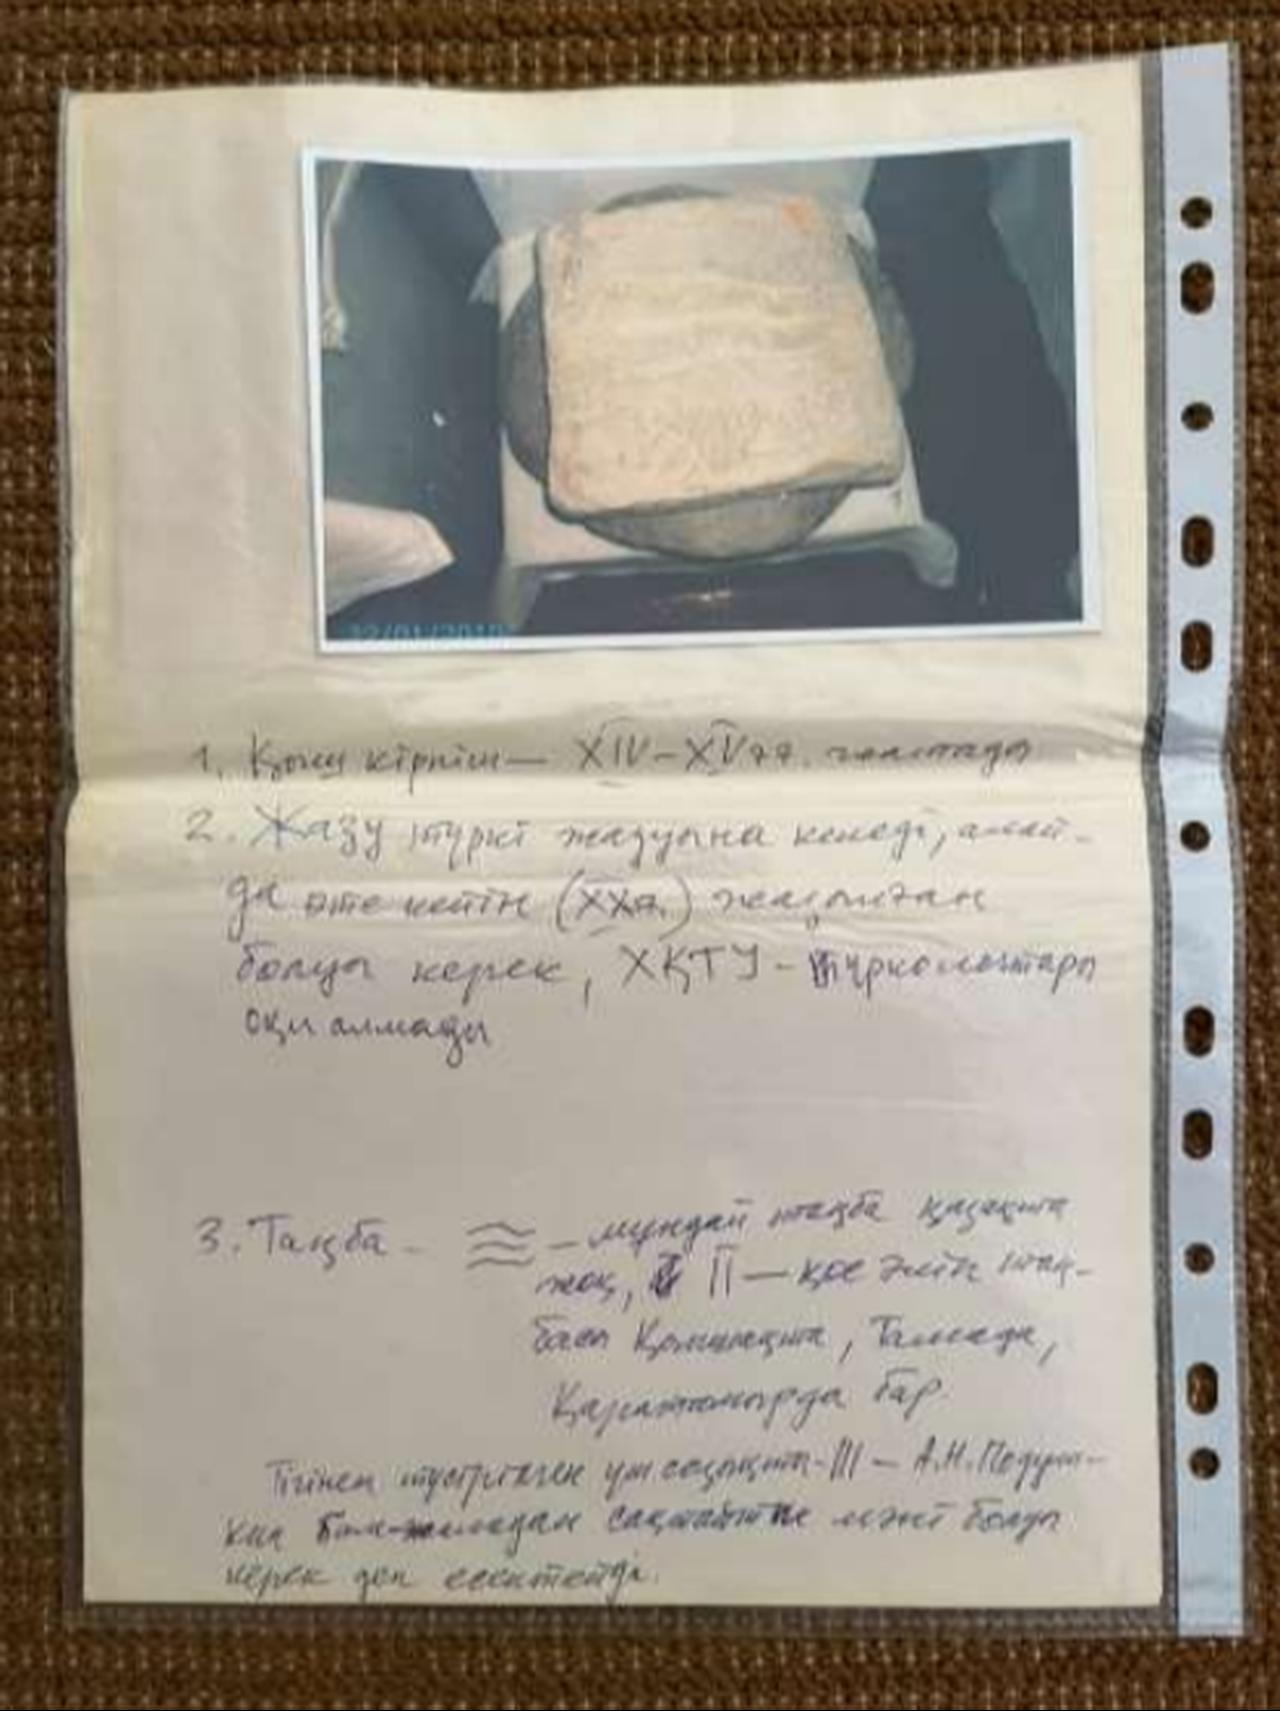 22/01/2010
1. Қыш кірпіш — XIV–XV ғғ. жатады
2. Жазу түркі жазуына келеді, алай-
да өте кейін (XX ғ.) жазылған
болуы керек, ХҚТУ - түркологтары
оқи алмады
3. Таңба - – мұндай таңба қазақта
жоқ, II — қос әліп таң-
басы Қыпшақта, Тамада,
Қаратамырда бар
Тігінен түсірілген үш сызықты - III – А.Н. Подуш-
кин бәле-жаладан сақтайтын мәні болуы
керек деп есептейді.